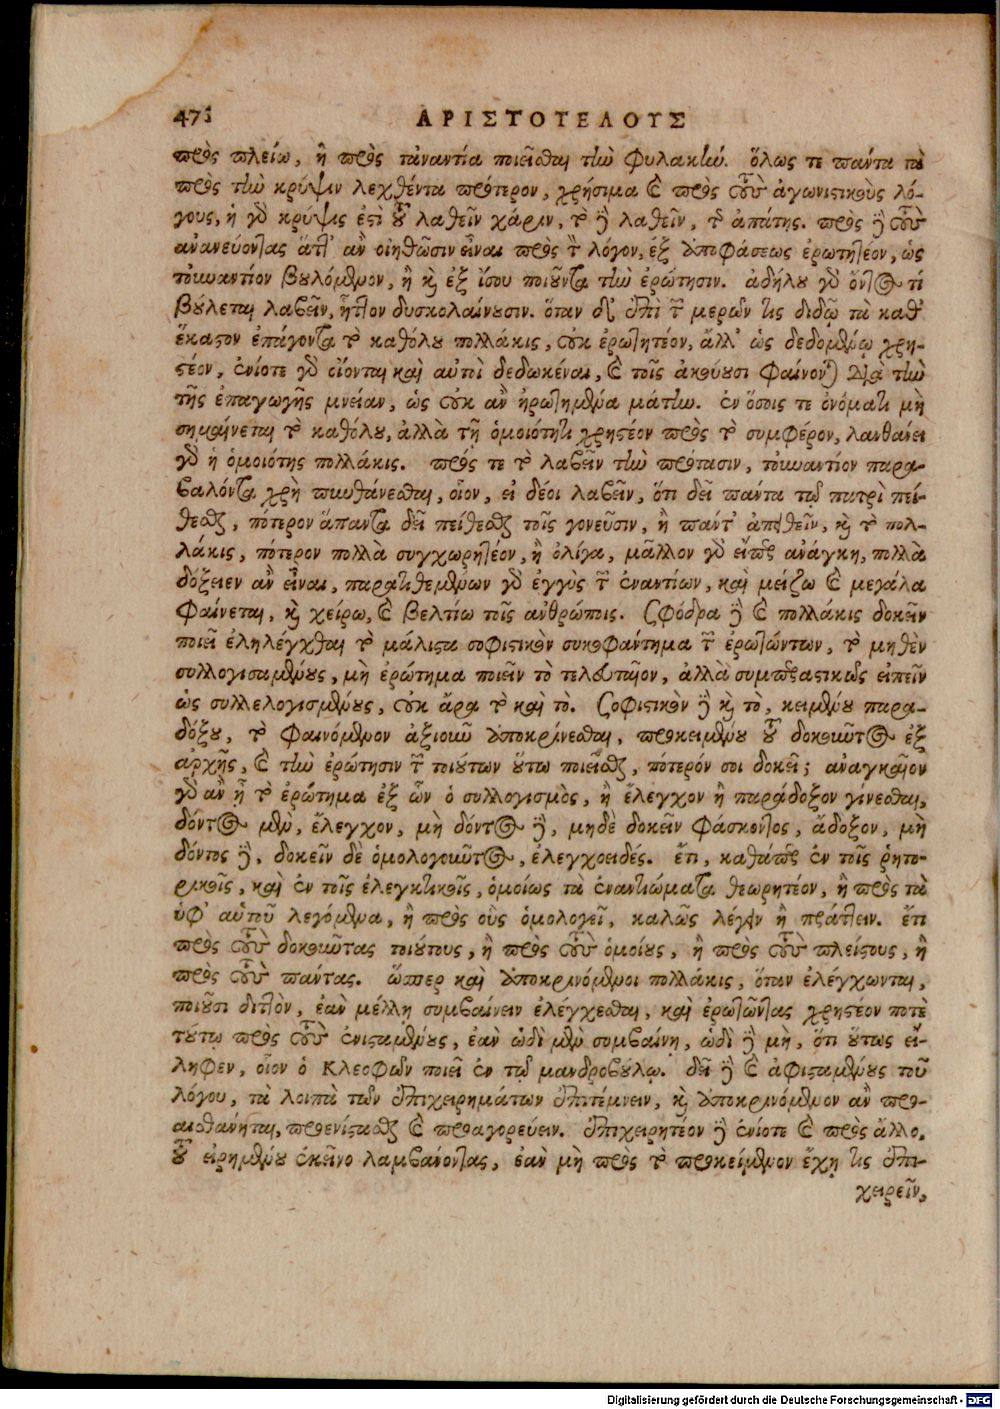 478 ΑΡΙΣΤΟΤΕΛΟΥΣ
πρὸς πλείω, ἢ πρὸς τἀναντία ποιεῖσθαι τὴν φυλακήν. ὅλως τε πάντα τὰ
πρὸς τὴν κρύψιν λεχθέντα πρότερον, χρήσιμα καὶ πρὸς τοὺς ἀγωνιστικοὺς λό-
γους, ἡ γὰρ κρύψις ἐστὶ τοῦ λαθεῖν χάριν, τὸ δὲ λαθεῖν, τῆς ἀπάτης. πρὸς δὲ τοὺς
ἀνανεύοντας ἅττ' ἂν οἰηθῶσιν εἶναι πρὸς τὸν λόγον, ἐξ ὑποφάσεως ἐρωτητέον, ὡς
τοὐναντίον βουλόμενον, ἢ καὶ ἐξ ἴσου ποιοῦντα τὴν ἐρώτησιν. ἀδήλου γὰρ ὄντος τί
βούλεται λαβεῖν, ἧττον δυσκολαίνουσιν. ὅταν δ' ἐπὶ τῶν μερῶν τις διδῷ τὰ καθ'
ἕκαστον ἐπάγοντα τὸ καθόλου πολλάκις, οὐκ ἐρωτητέον, ἀλλ' ὡς δεδομένῳ χρη-
στέον, ἐνίοτε γὰρ οἴονται καὶ αὐτοὶ δεδωκέναι, καὶ τοῖς ἀκούουσι φαίνονται διὰ τὴν
τῆς ἐπαγωγῆς μνείαν, ὡς οὐκ ἂν ἠρωτημένα μάτην. ἐν ὅσοις τε ὀνόματι μὴ
σημαίνεται τὸ καθόλου, ἀλλὰ τῇ ὁμοιότητι χρηστέον πρὸς τὸ συμφέρον, λανθάνει
γὰρ ἡ ὁμοιότης πολλάκις. πρός τε τὸ λαβεῖν τὴν πρότασιν, τοὐναντίον παρα-
βαλόντα χρὴ πυνθάνεσθαι, οἷον, εἰ δέοι λαβεῖν, ὅτι δεῖ πάντα τῷ πατρὶ πεί-
θεσθαι, πότερον ἅπαντα δεῖ πείθεσθαι τοῖς γονεῦσιν, ἢ πάντ' ἀπειθεῖν, καὶ τὸ πολ-
λάκις, πότερον πολλὰ συγχωρητέον, ἢ ὀλίγα, μᾶλλον γὰρ εἴπερ ἀνάγκη, πολλὰ
δόξειεν ἂν εἶναι, παρατιθεμένων γὰρ ἐγγὺς τῶν ἐναντίων, καὶ μείζω καὶ μεγάλα
φαίνεται, καὶ χείρω, καὶ βελτίω τοῖς ἀνθρώποις. Σφόδρα δὲ καὶ πολλάκις δοκεῖν
ποιεῖ ἐληλέγχθαι τὸ μάλιστα σοφιστικὸν συκοφάντημα τῶν ἐρωτώντων, τὸ μηθὲν
συλλογισαμένους, μὴ ἐρώτημα ποιεῖν τὸ τελευταῖον, ἀλλὰ συμπεραστικῶς εἰπεῖν
ὡς συλλελογισμένους, οὐκ ἄρα τὸ καὶ τό. Σοφιστικὸν δὲ καὶ τὸ, κειμένου παρα-
δόξου, τὸ φαινόμενον ἀξιοῦν ὑποκρίνεσθαι, προκειμένου τοῦ δοκοῦντος ἐξ
ἀρχῆς, καὶ τὴν ἐρώτησιν τῶν τοιούτων οὕτω ποιεῖσθαι, πότερόν σοι δοκεῖ; ἀναγκαῖον
γὰρ ἂν ᾖ τὸ ἐρώτημα ἐξ ὧν ὁ συλλογισμὸς, ἢ ἔλεγχον ἢ παράδοξον γίνεσθαι,
δόντος μὲν, ἔλεγχον, μὴ δόντος δὲ, μηδὲ δοκεῖν φάσκοντος, ἄδοξον, μὴ
δόντος δὲ, δοκεῖν δὲ ὁμολογοῦντος, ἐλεγχοειδές. ἔτι, καθάπερ ἐν τοῖς ῥητο-
ρικοῖς, καὶ ἐν τοῖς ἐλεγκτικοῖς, ὁμοίως τὰ ἐναντιώματα θεωρητέον, ἢ πρὸς τὰ
ὑφ' αὑτοῦ λεγόμενα, ἢ πρὸς οὓς ὁμολογεῖ, καλῶς λέγειν ἢ πράττειν. ἔτι
πρὸς τοὺς δοκοῦντας τοιούτους, ἢ πρὸς τοὺς ὁμοίους, ἢ πρὸς τοὺς πλείστους, ἢ
πρὸς τοὺς πάντας. ὥσπερ καὶ ὑποκρινόμενοι πολλάκις, ὅταν ἐλέγχωνται,
ποιοῦσι διττὸν, ἐὰν μέλλῃ συμβαίνειν ἐλέγχεσθαι, καὶ ἐρωτῶντας χρηστέον ποτὲ
τούτῳ πρὸς τοὺς ἐνισταμένους, ἐὰν ὡδὶ μὲν συμβαίνῃ, ὡδὶ δὲ μὴ, ὅτι οὕτως εἴ-
ληφεν, οἷον ὁ Κλεοφῶν ποιεῖ ἐν τῷ μανδροβούλῳ. δεῖ δὲ καὶ ἀφισταμένους τοῦ
λόγου, τὰ λοιπὰ τῶν ἐπιχειρημάτων ἐπιτέμνειν, καὶ ὑποκρινόμενον ἂν προ-
αισθάνηται, προενίστασθαι καὶ προαγορεύειν. ἐπιχειρητέον δὲ ἐνίοτε καὶ πρὸς ἄλλο.
τοῦ εἰρημένου ἐκεῖνο λαμβάνοντας, ἐὰν μὴ πρὸς τὸ προκείμενον ἔχῃ τις ἐπι-
χειρεῖν,
Digitalisierung gefördert durch die Deutsche Forschungsgemeinschaft - DFG